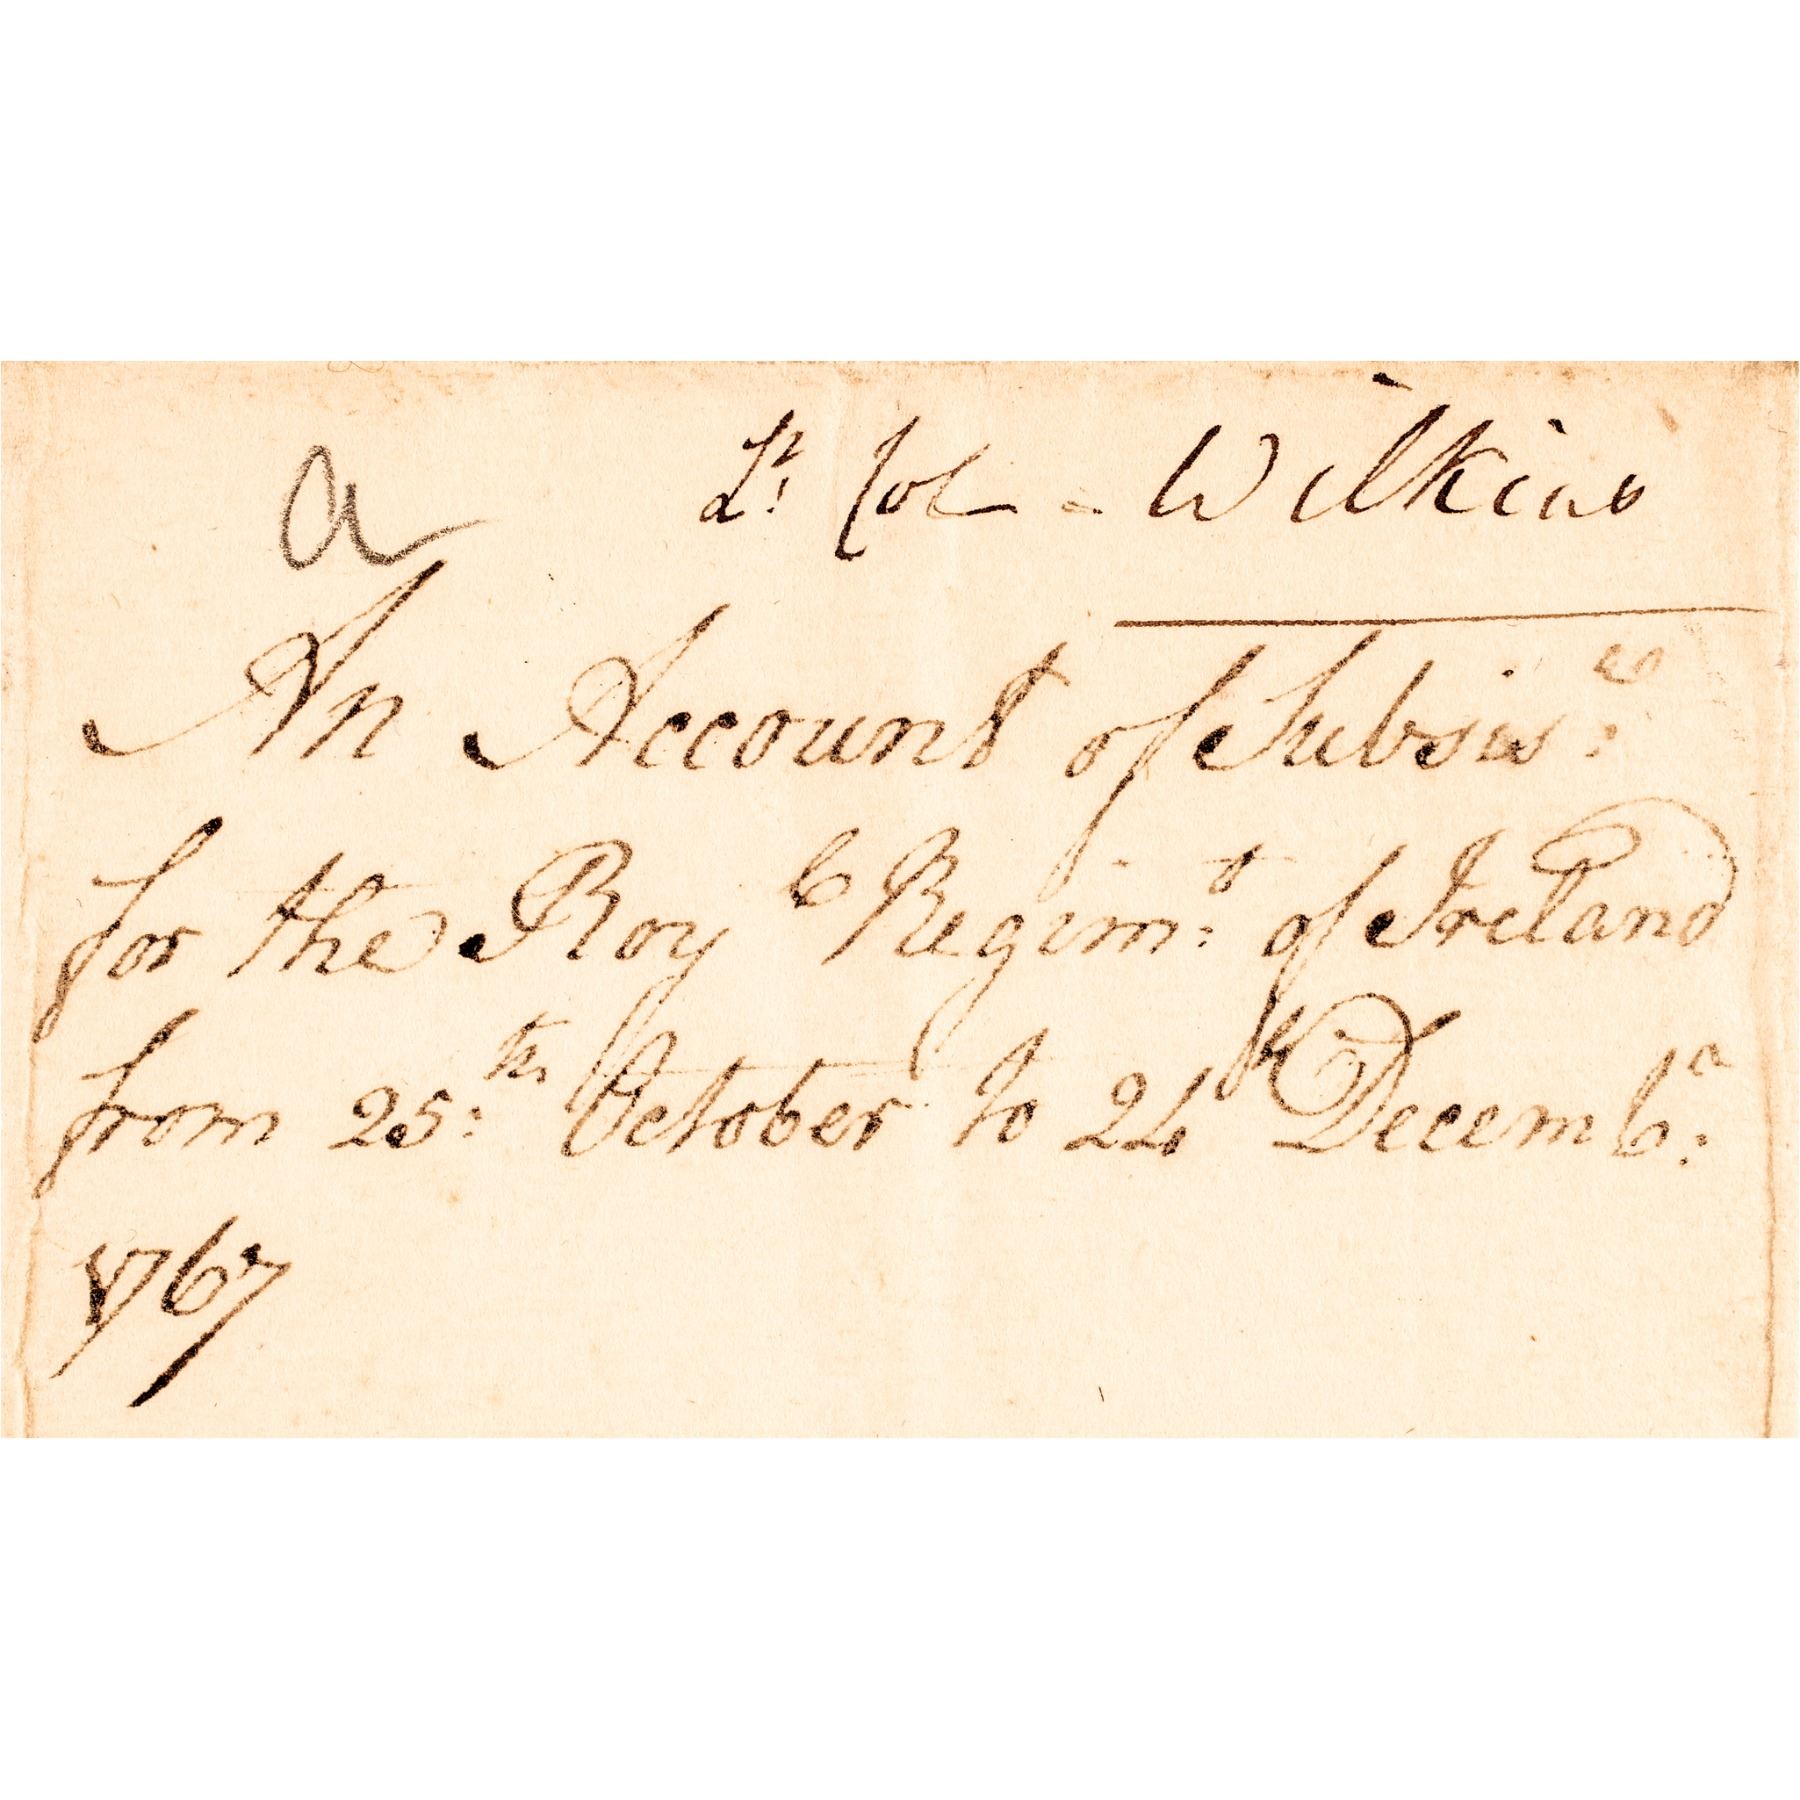 a
Lt. Col - Wilkins
An Account of Subsis:ce
for the Roy l Regim:t of Ireland
from 25:th October to 24th Decemb:r
1767